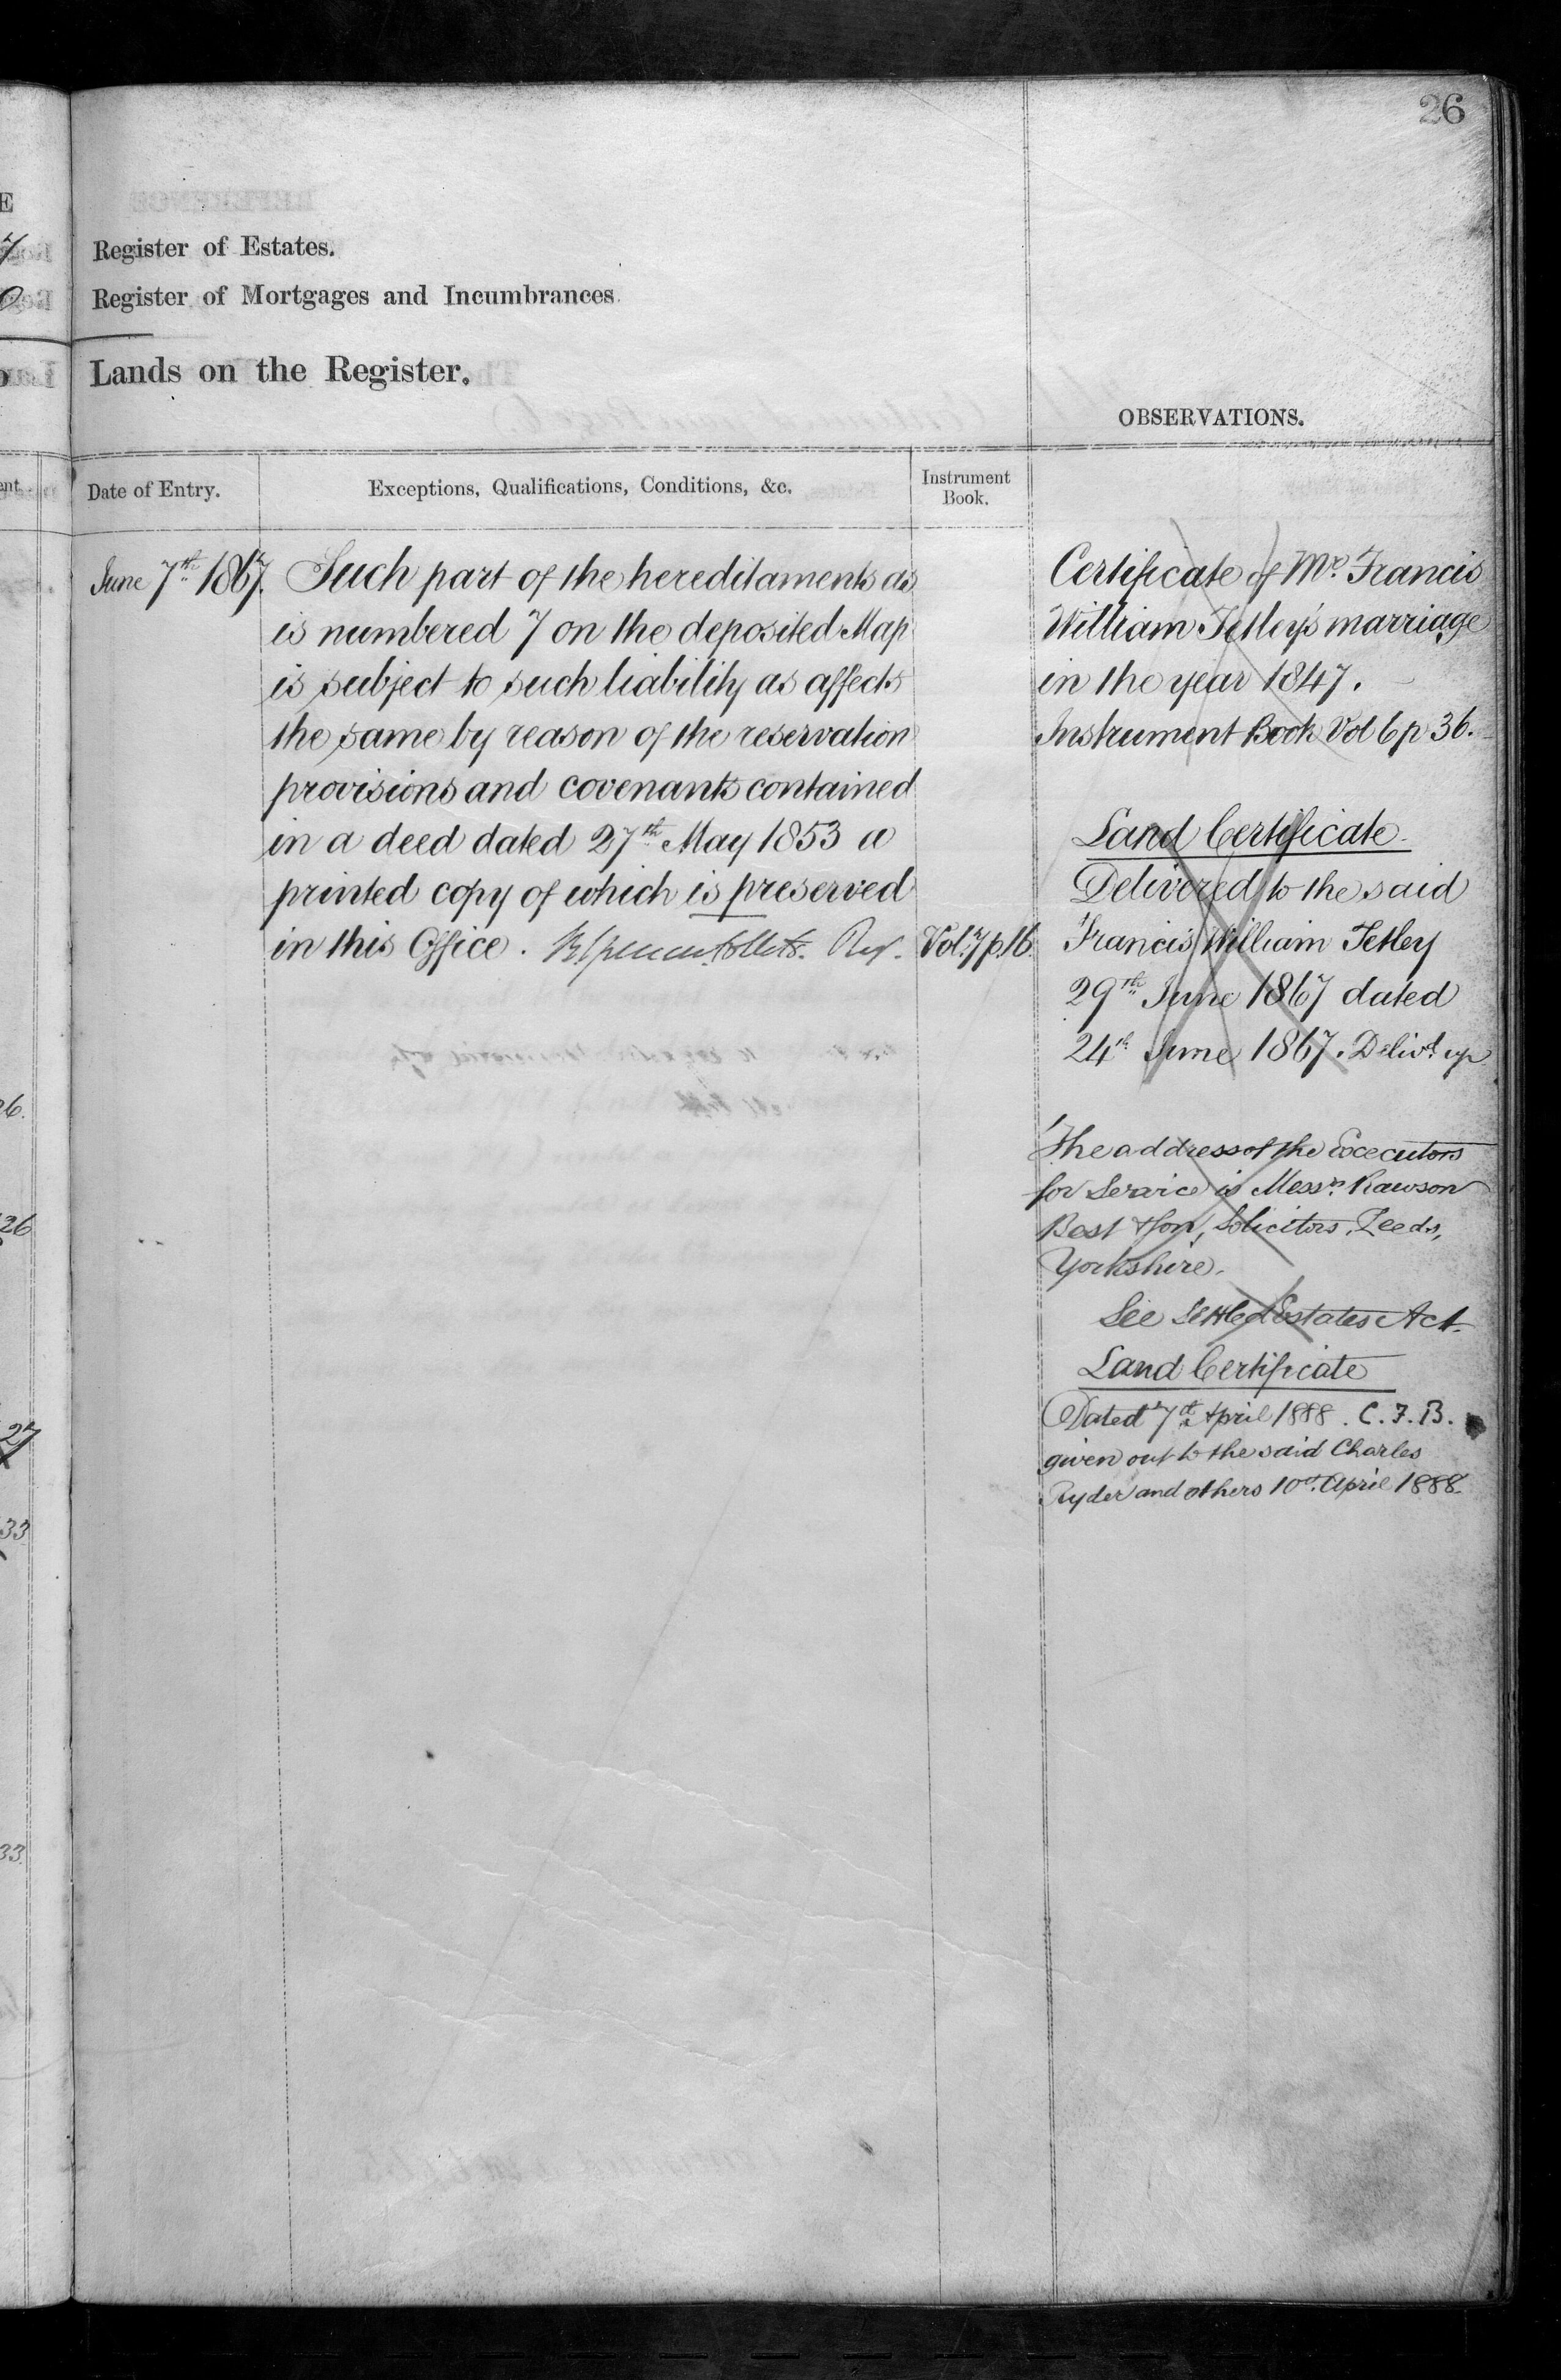 26
Register of Estates.
Register of Mortgages and Incumbrances
Lands on the Register.
OBSERVATIONS.
Date of Entry.
Exceptions, Qualifications, Conditions, &c.
Instrument
Book.
June 7th 1867.
Such part of the hereditaments as
is numbered 7 on the deposited Map
is subject to such liability as affects
the same by reason of the reservation
provisions and covenants contained
in a deed dated 27th May 1853 a
printed copy of which is preserved
in this Office. Reg.
Vol. 7 p. 16.
Certificate of Mr. Francis
William Tetley's marriage
in the year 1847.
Instrument Book Vol 6 p 36.
Land Certificate
Delivered to the said
Francis William Tetley
29th June 1867 dated
24th June 1867. Delivd. up
The address of the Executors
for Service is Messrs. Rawson
Best & Son, Solicitors, Leeds,
Yorkshire.
See Settled Estates Act.
Land Certificate
Dated 7th April 1888. C.F.B.
given out to the said Charles
Ryder and others 10th. April 1888.
26.
26
27
33
33.